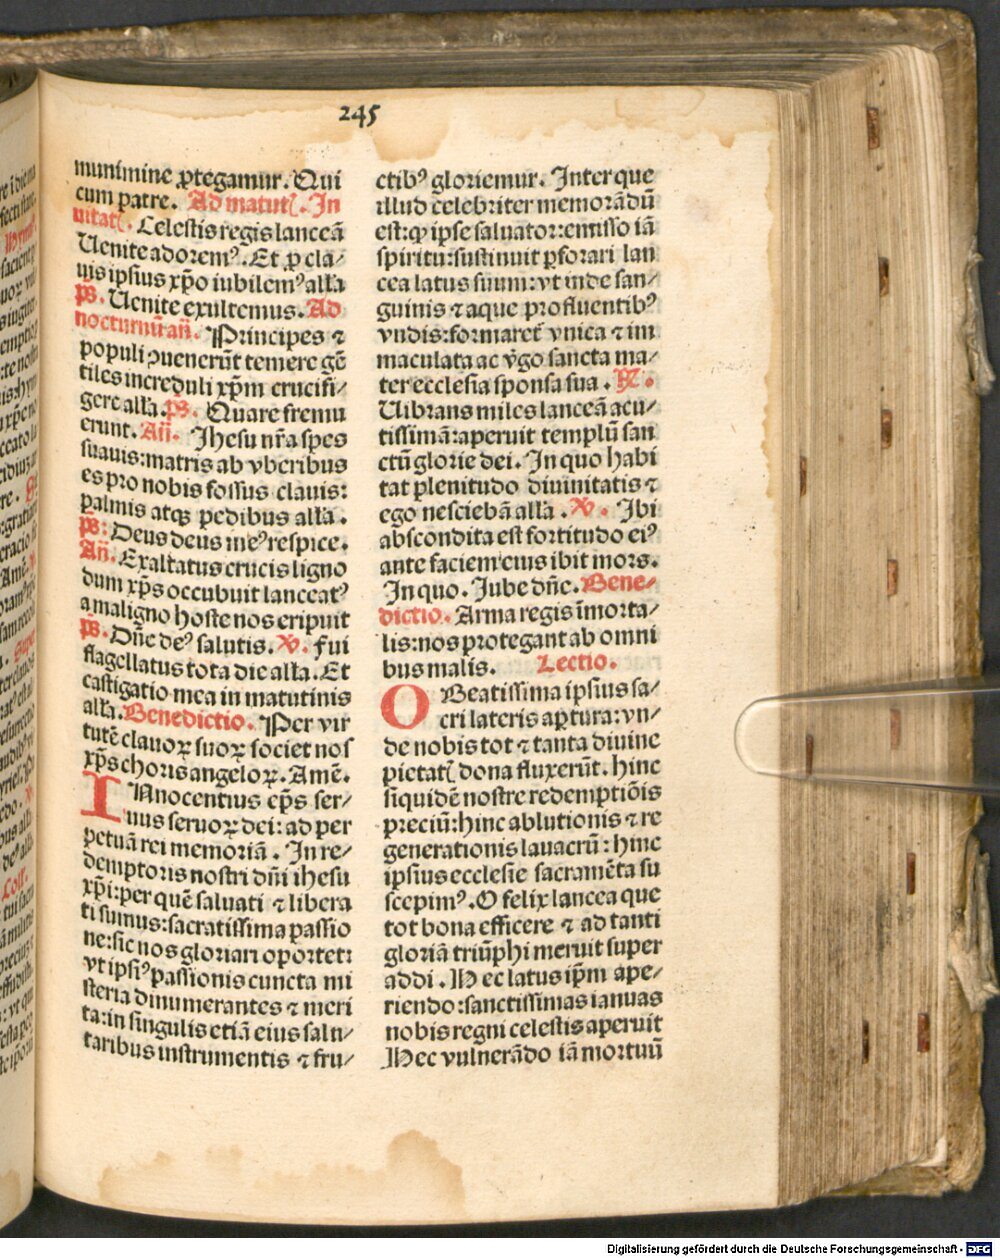 245
munimine ꝓtegamur. Qui
cum patre. Ad matutꝭ. In
uitatꝭ. Celestis regis lanceã
Uenite adoremꝰ. Et ꝓ cla⸗
uis ipsius xp̃o iubilemꝰ alla
p̃s. Uenite exultemus. Ad
nocturnũ añ. Principes ⁊
populi ꝯuenerũt temere gẽ
tiles increduli xp̃m crucifi⸗
gere alla. p̃s. Quare fremu
erunt. Añ. Jhesu nr̃a spes
suauis: matris ab vberibus
es pro nobis fossus clauis:
palmis atqꝫ pedibus alla.
p̃s: Deus deus meꝰ respice.
Añ. Exaltatus crucis ligno
dum xp̃s occubuit lanceatꝰ
a maligno hoste nos eripuit
p̃s. Dñe deꝰ salutis. ꝟ. Fui
flagellatus tota die alla. Et
castigatio mea in matutinis
alla. Benedictio. Per vir
tutẽ clauoꝝ suoꝝ societ nos
xp̃s choris angeloꝝ. Amẽ.
INnocentius ep̃s ser⸗
uus seruoꝝ dei: ad per
petuã rei memoriã. In re⸗
demptoris nostri dñi ihesu
xp̃i: per quẽ saluati ⁊ libera
ti sumus: sacratissima passio
ne: sic nos gloriari oportet:
vt ipsiꝰ passionis cuncta mi
steria dinumerantes ⁊ meri
ta: in singulis etiã eius salu⸗
taribus instrumentis ⁊ fru⸗
ctibꝰ gloriemur. Inter que
illud celebriter memorãdũ
est: ꝙ ipse saluator: emisso iã
spiritu: sustinuit ꝑforari lan
cea latus suum: vt inde san⸗
guinis ⁊ aque profluentibꝰ
vndis: formaret̃ vnica ⁊ im
maculata ac v̾go sancta ma⸗
ter ecclesia sponsa sua. ℟.
Uibrans miles lanceã acu⸗
tissimã: aperuit templũ san
ctũ glorie dei. In quo habi
tat plenitudo diuinitatis ⁊
ego nesciebã alla. ꝟ. Ibi
abscondita est fortitudo eiꝰ
ante faciem eius ibit mors.
In quo. Jube dñe. Bene⸗
dictio. Arma regis ĩmorta⸗
lis: nos protegant ab omni
bus malis. Lectio.
O Beatissima ipsius sa⸗
cri lateris aꝑtura: vn⸗
de nobis tot ⁊ tanta diuine
pietatꝭ dona fluxerũt. hinc
siquidẽ nostre redemptiõis
preciũ: hinc ablutionis ⁊ re
generationis lauacrũ: hinc
ipsius ecclesie sacramẽta su
scepimꝰ. O felix lancea que
tot bona efficere ⁊ ad tanti
gloriã triũphi meruit super
addi. Hec latus ip̃m ape⸗
riendo: sanctissimas ianuas
nobis regni celestis aperuit
Hec vulnerãdo iã mortuũ
Digitalisierung gefördert durch die Deutsche Forschungsgemeinschaft - DFG